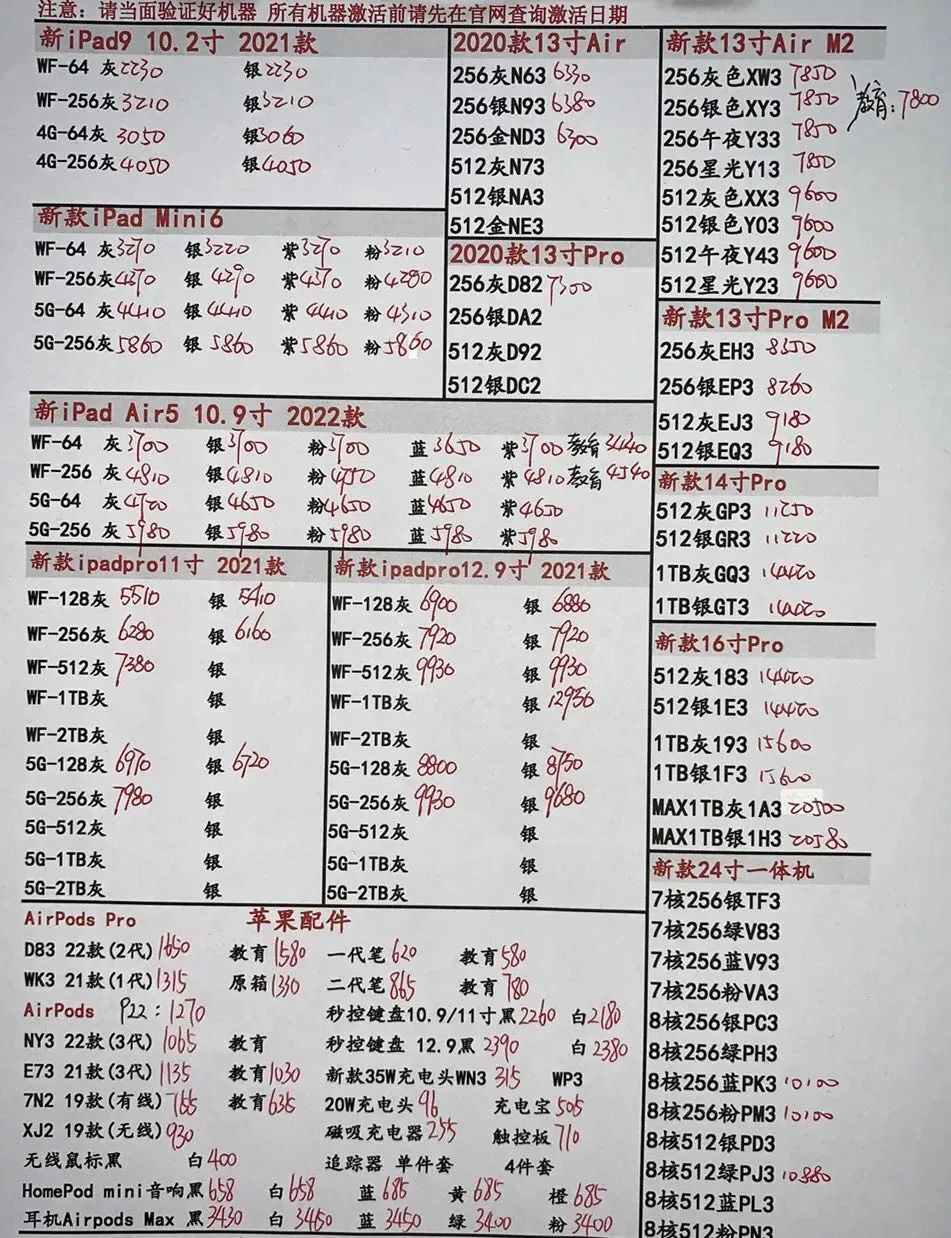 注意：请当面验证好机器 所有机器激活前请先在官网查询激活日期
新iPad9 10.2寸 2021款
WF-64 灰2230 银2230
WF-256灰3210 银3210
4G-64灰 3050 银3060
4G-256灰4050 银4050
新款iPad Mini6
WF-64 灰3270 银3220 紫3270 粉3210
WF-256灰4270 银4290 紫4370 粉4280
5G-64 灰4410 银4410 紫4410 粉4310
5G-256灰5860 银5860 紫5860 粉5860
2020款13寸Air
256灰N63 6330
256银N93 6380
256金ND3 6300
512灰N73
512银NA3
512金NE3
2020款13寸Pro
256灰D82 7300
256银DA2
512灰D92
512银DC2
新款13寸Air M2
256灰色XW3 7850
256银色XY3 7850 教育：7800
256午夜Y33 7850
256星光Y13 7850
512灰色XX3 9600
512银色Y03 9600
512午夜Y43 9600
512星光Y23 9600
新款13寸Pro M2
256灰EH3 8350
256银EP3 8260
512灰EJ3 9180
512银EQ3 9180
新iPad Air5 10.9寸 2022款
WF-64 灰3700 银3700 粉3700 蓝3650 紫3700 教育3440
WF-256 灰4810 银4810 粉4750 蓝4810 紫4810 教育4540
5G-64 灰4700 银4650 粉4650 蓝4650 紫4650
5G-256 灰5980 银5980 粉5980 蓝5980 紫5980
新款14寸Pro
512灰GP3 11250
512银GR3 11220
1TB灰GQ3 14420
1TB银GT3 14420
新款ipadpro11寸 2021款
WF-128灰 5510 银 5410
WF-256灰 6280 银 6160
WF-512灰 7380 银
WF-1TB灰 银
WF-2TB灰 银
5G-128灰 6970 银 6720
5G-256灰 7980 银
5G-512灰 银
5G-1TB灰 银
5G-2TB灰 银
新款ipadpro12.9寸 2021款
WF-128灰 6900 银 6880
WF-256灰 7920 银 7920
WF-512灰 9930 银 9930
WF-1TB灰 银 12950
WF-2TB灰 银
5G-128灰 8800 银 8750
5G-256灰 9930 银 9680
5G-512灰 银
5G-1TB灰 银
5G-2TB灰 银
新款16寸Pro
512灰183 14420
512银1E3 14420
1TB灰193 15600
1TB银1F3 15600
MAX1TB灰1A3 20500
MAX1TB银1H3 20580
新款24寸一体机
7核256银TF3
7核256绿V83
7核256蓝V93
7核256粉VA3
8核256银PC3
8核256绿PH3
8核256蓝PK3 10100
8核256粉PM3 10100
8核512银PD3
8核512绿PJ3 10880
8核512蓝PL3
8核512粉PN3
AirPods Pro 苹果配件
D83 22款(2代) 1650 教育 1580 一代笔 620 教育 580
WK3 21款(1代) 1315 原箱 1330 二代笔 865 教育 780
AirPods P22：1270 秒控键盘10.9/11寸黑2260 白2180
NY3 22款(3代) 1065 教育 秒控键盘 12.9黑 2390 白 2380
E73 21款(3代) 1135 教育1030 新款35W充电头WN3 315 WP3
7N2 19款(有线) 755 教育635 20W充电头 96 充电宝 505
XJ2 19款(无线) 930 磁吸充电器 255 触控板 710
无线鼠标黑 白400 追踪器 单件套 4件套
HomePod mini音响黑 658 白 658 蓝 685 黄 685 橙 685
耳机Airpods Max 黑 3430 白 3460 蓝 3450 绿 3400 粉 3400